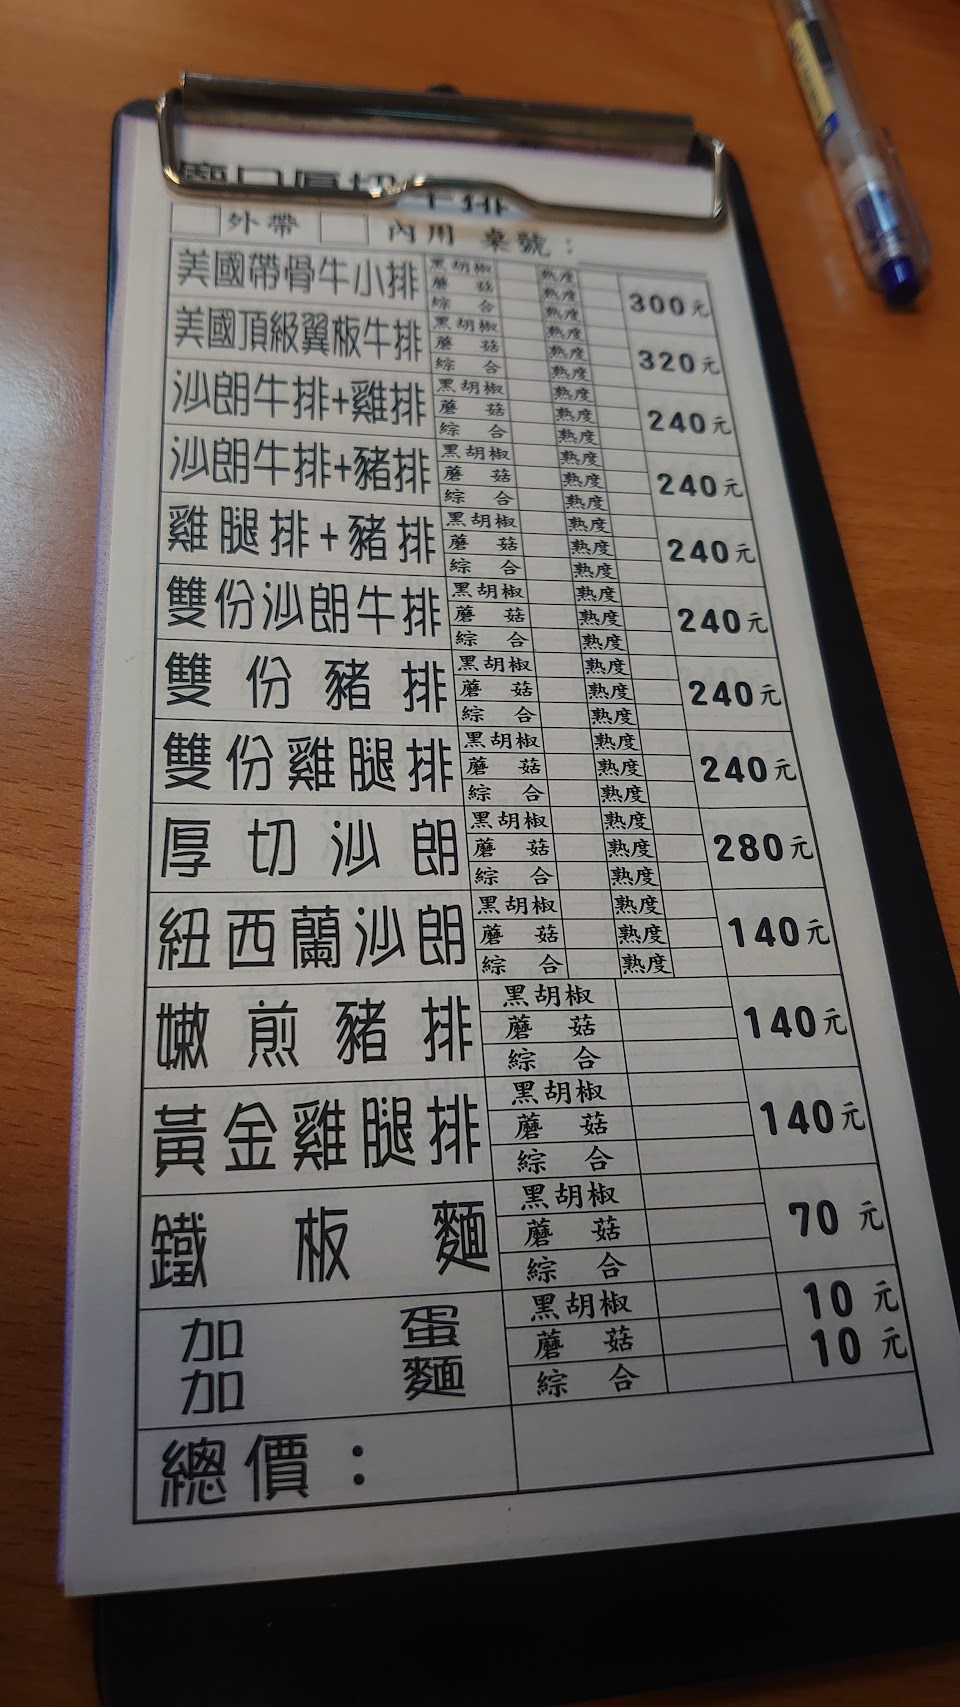 外帶 內用 桌號：
美國帶骨牛小排 黑胡椒 熟度 300元
蘑菇 熟度
綜合 熟度
美國頂級翼板牛排 黑胡椒 熟度 320元
蘑菇 熟度
綜合 熟度
沙朗牛排+雞排 黑胡椒 熟度 240元
蘑菇 熟度
綜合 熟度
沙朗牛排+豬排 黑胡椒 熟度 240元
蘑菇 熟度
綜合 熟度
雞腿排+豬排 黑胡椒 熟度 240元
蘑菇 熟度
綜合 熟度
雙份沙朗牛排 黑胡椒 熟度 240元
蘑菇 熟度
綜合 熟度
雙份豬排 黑胡椒 熟度 240元
蘑菇 熟度
綜合 熟度
雙份雞腿排 黑胡椒 熟度 240元
蘑菇 熟度
綜合 熟度
厚切沙朗 黑胡椒 熟度 280元
蘑菇 熟度
綜合 熟度
紐西蘭沙朗 黑胡椒 熟度 140元
蘑菇 熟度
綜合 熟度
嫩煎豬排 黑胡椒 140元
蘑菇
綜合
黃金雞腿排 黑胡椒 140元
蘑菇
綜合
鐵板麵 黑胡椒 70元
蘑菇
綜合
加蛋 黑胡椒 10元
加麵 蘑菇 10元
綜合
總價：